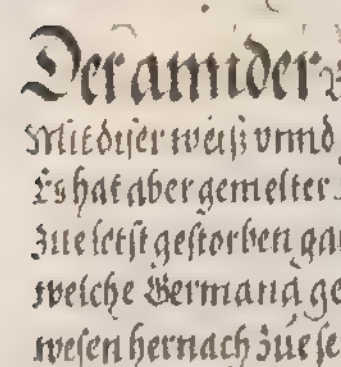 Der annder
Mit diser weiß vnnd
Es hat aber gemelter
zue letst gestorben ga
welche Germana ge
wesen hernach zue se